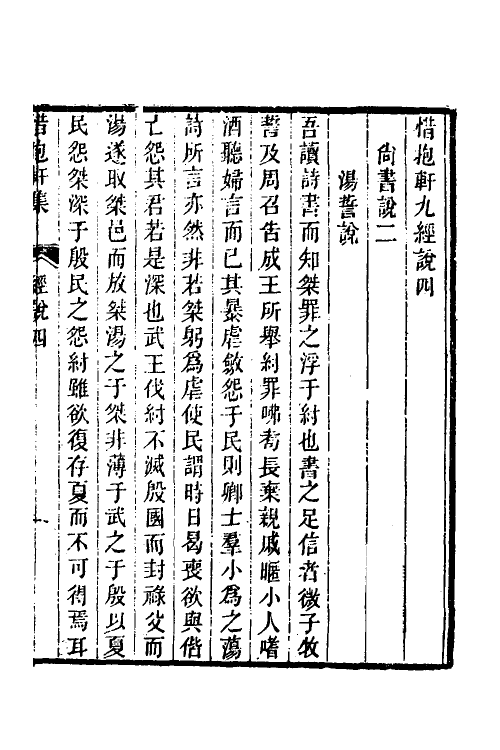 惜抱軒九經說四
尙書說二
湯誓說
吾讀詩書而知桀罪之浮于紂也書之足信者微子牧
誓及周召告成王所舉紂罪咈耉長棄親戚暱小人嗜
酒聽婦言而已其暴虐斂怨于民則卿士羣小爲之蕩
詩所言亦然非若桀躬爲虐使民謂時日曷喪欲與偕
亡怨其君若是深也武王伐紂不滅殷國而封祿父而
湯遂取桀邑而放桀湯之于桀非薄于武之于殷以夏
民怨桀深于殷民之怨紂雖欲復存夏而不可得焉耳
惜抱軒集 經說四 一